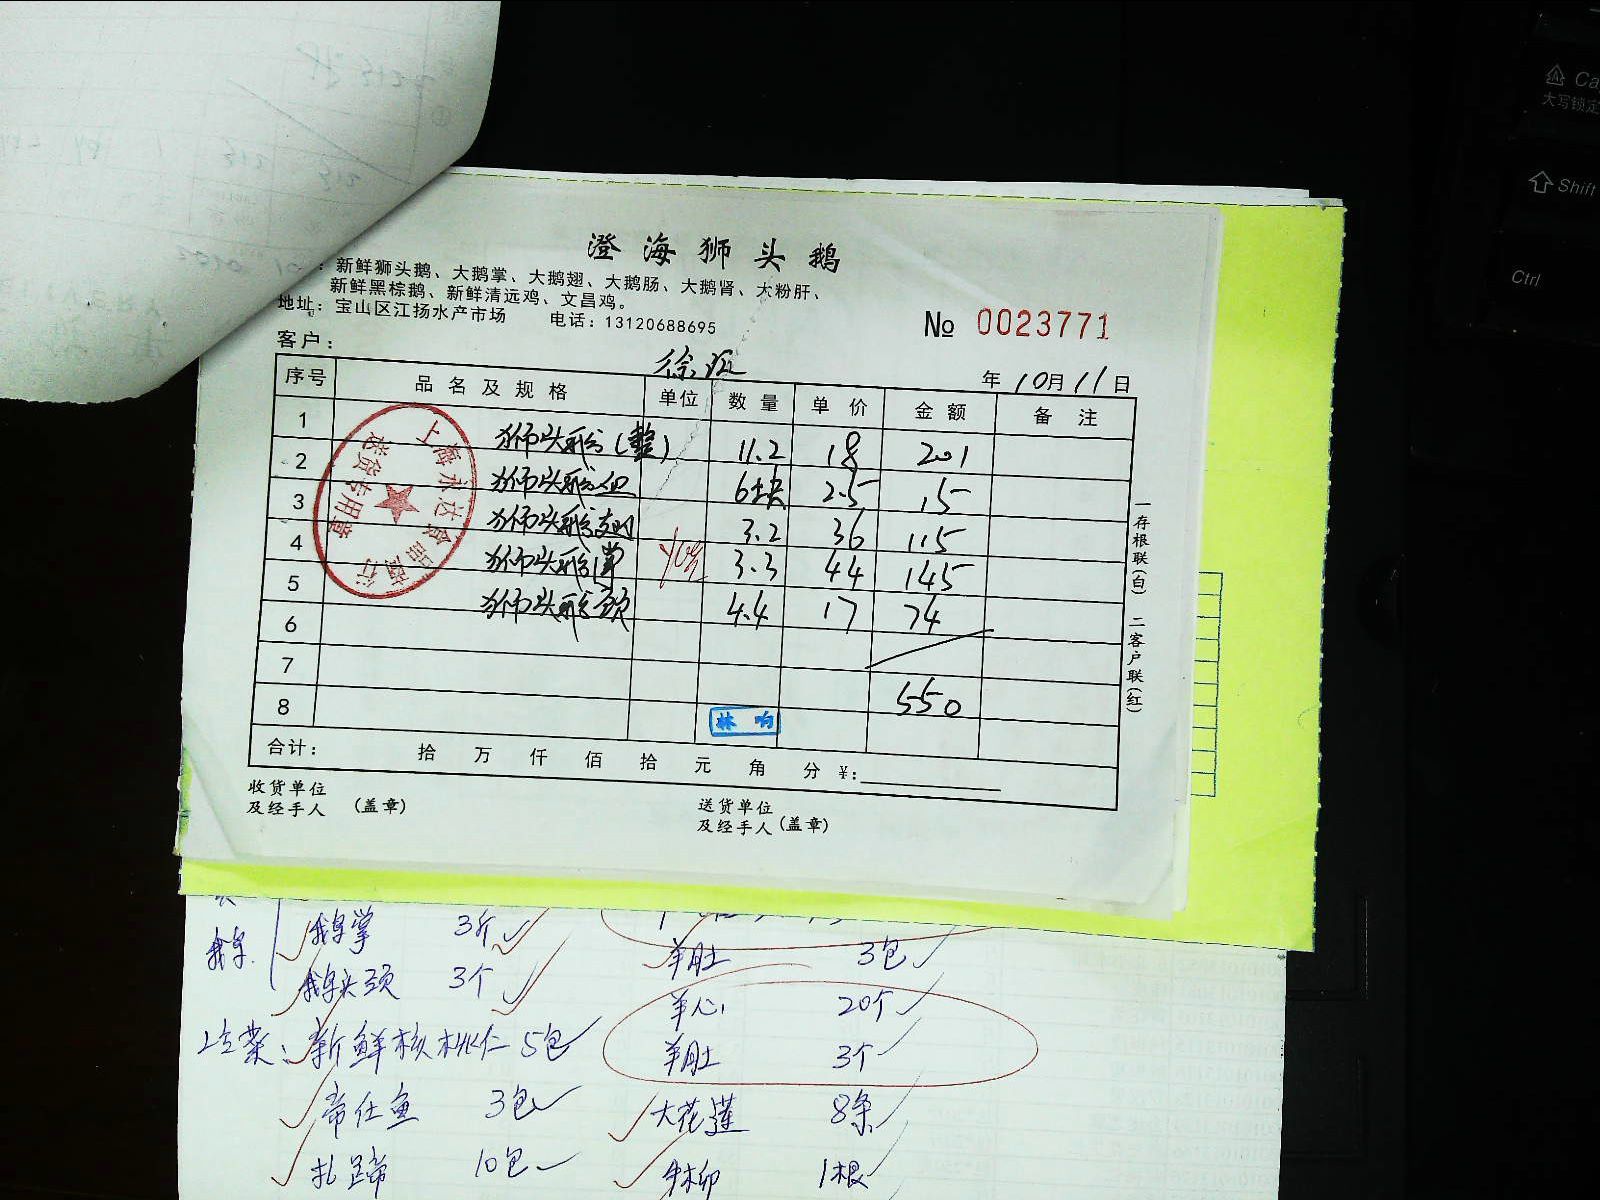 澄海狮头鹅
：新鲜狮头鹅、大鹅掌、大鹅翅、大鹅肠、大鹅肾、大粉肝、
新鲜黑棕鹅、新鲜清远鸡、文昌鸡。
地址：宝山区江扬水产市场 电话：13120688695
№ 0023771
客户：
年 10月 11日
序号 品名及规格 单位 数量 单价 金额 备注
1 狮头鹅(整) 11.2 18 201
2 狮头鹅 6块 2.5 15
3 狮头鹅翅 3.2 36 115
4 狮头鹅掌 3.3 44 145
5 狮头鹅颈 4.4 17 74
6
7 550
8
林响
上海永达食品商行
送货专用章
合计： 拾 万 仟 佰 拾 元 角 分 ¥：
收货单位
及经手人 (盖章)
送货单位
及经手人 (盖章)
一存根联(白) 二客户联(红)
鹅掌 3斤
鹅.
鹅头颈 3个
新鲜核桃仁 5包
帝仕鱼 3包
扎蹄 10包
羊肚 3包
羊心 20个
羊肚 3个
大花莲 8条
牛柳 1根
Ca
大写锁定
Shift
Ctrl